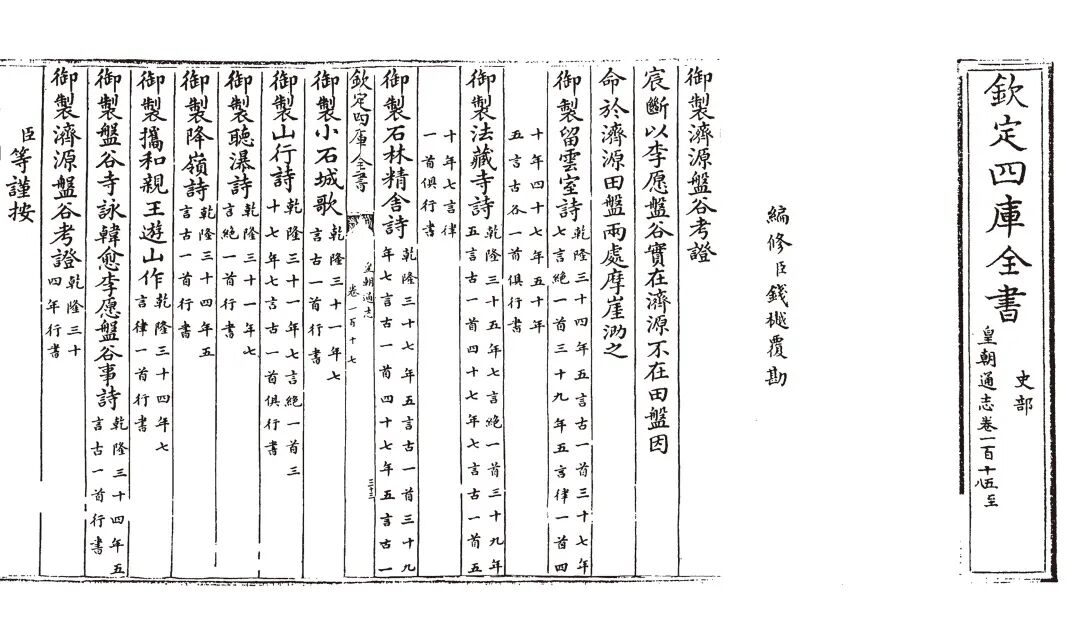 欽定四庫全書
史部
皇朝通志卷一百十五至八
編修臣錢樾覆勘
御製濟源盤谷考證
宸斷以李愿盤谷實在濟源不在田盤因
命於濟源田盤兩處摩崖泐之
御製留雲室詩乾隆三十四年五言古一首三十七年七言絕一首三十九年五言律一首四
十年四十七年五十年五言古各一首俱行書
御製法藏寺詩乾隆三十五年七言絕一首三十九年五言古一首四十七年七言古一首五
十年七言律一首俱行書
御製石林精舍詩乾隆三十七年五言古一首三十九年七言古一首四十七年五言古一
欽定四庫全書 皇朝通志 卷一百十七 三十三
御製小石城歌乾隆三十一年七言古一首行書
御製山行詩乾隆三十一年七言絕一首三十七年七言古一首俱行書
御製聽瀑詩乾隆三十一年七言絕一首行書
御製降嶺詩乾隆三十四年五言古一首行書
御製攜和親王遊山作乾隆三十四年七言律一首行書
御製盤谷寺詠韓愈李愿盤谷事詩乾隆三十四年五言古一首行書
御製濟源盤谷考證乾隆三十四年行書
臣等謹按